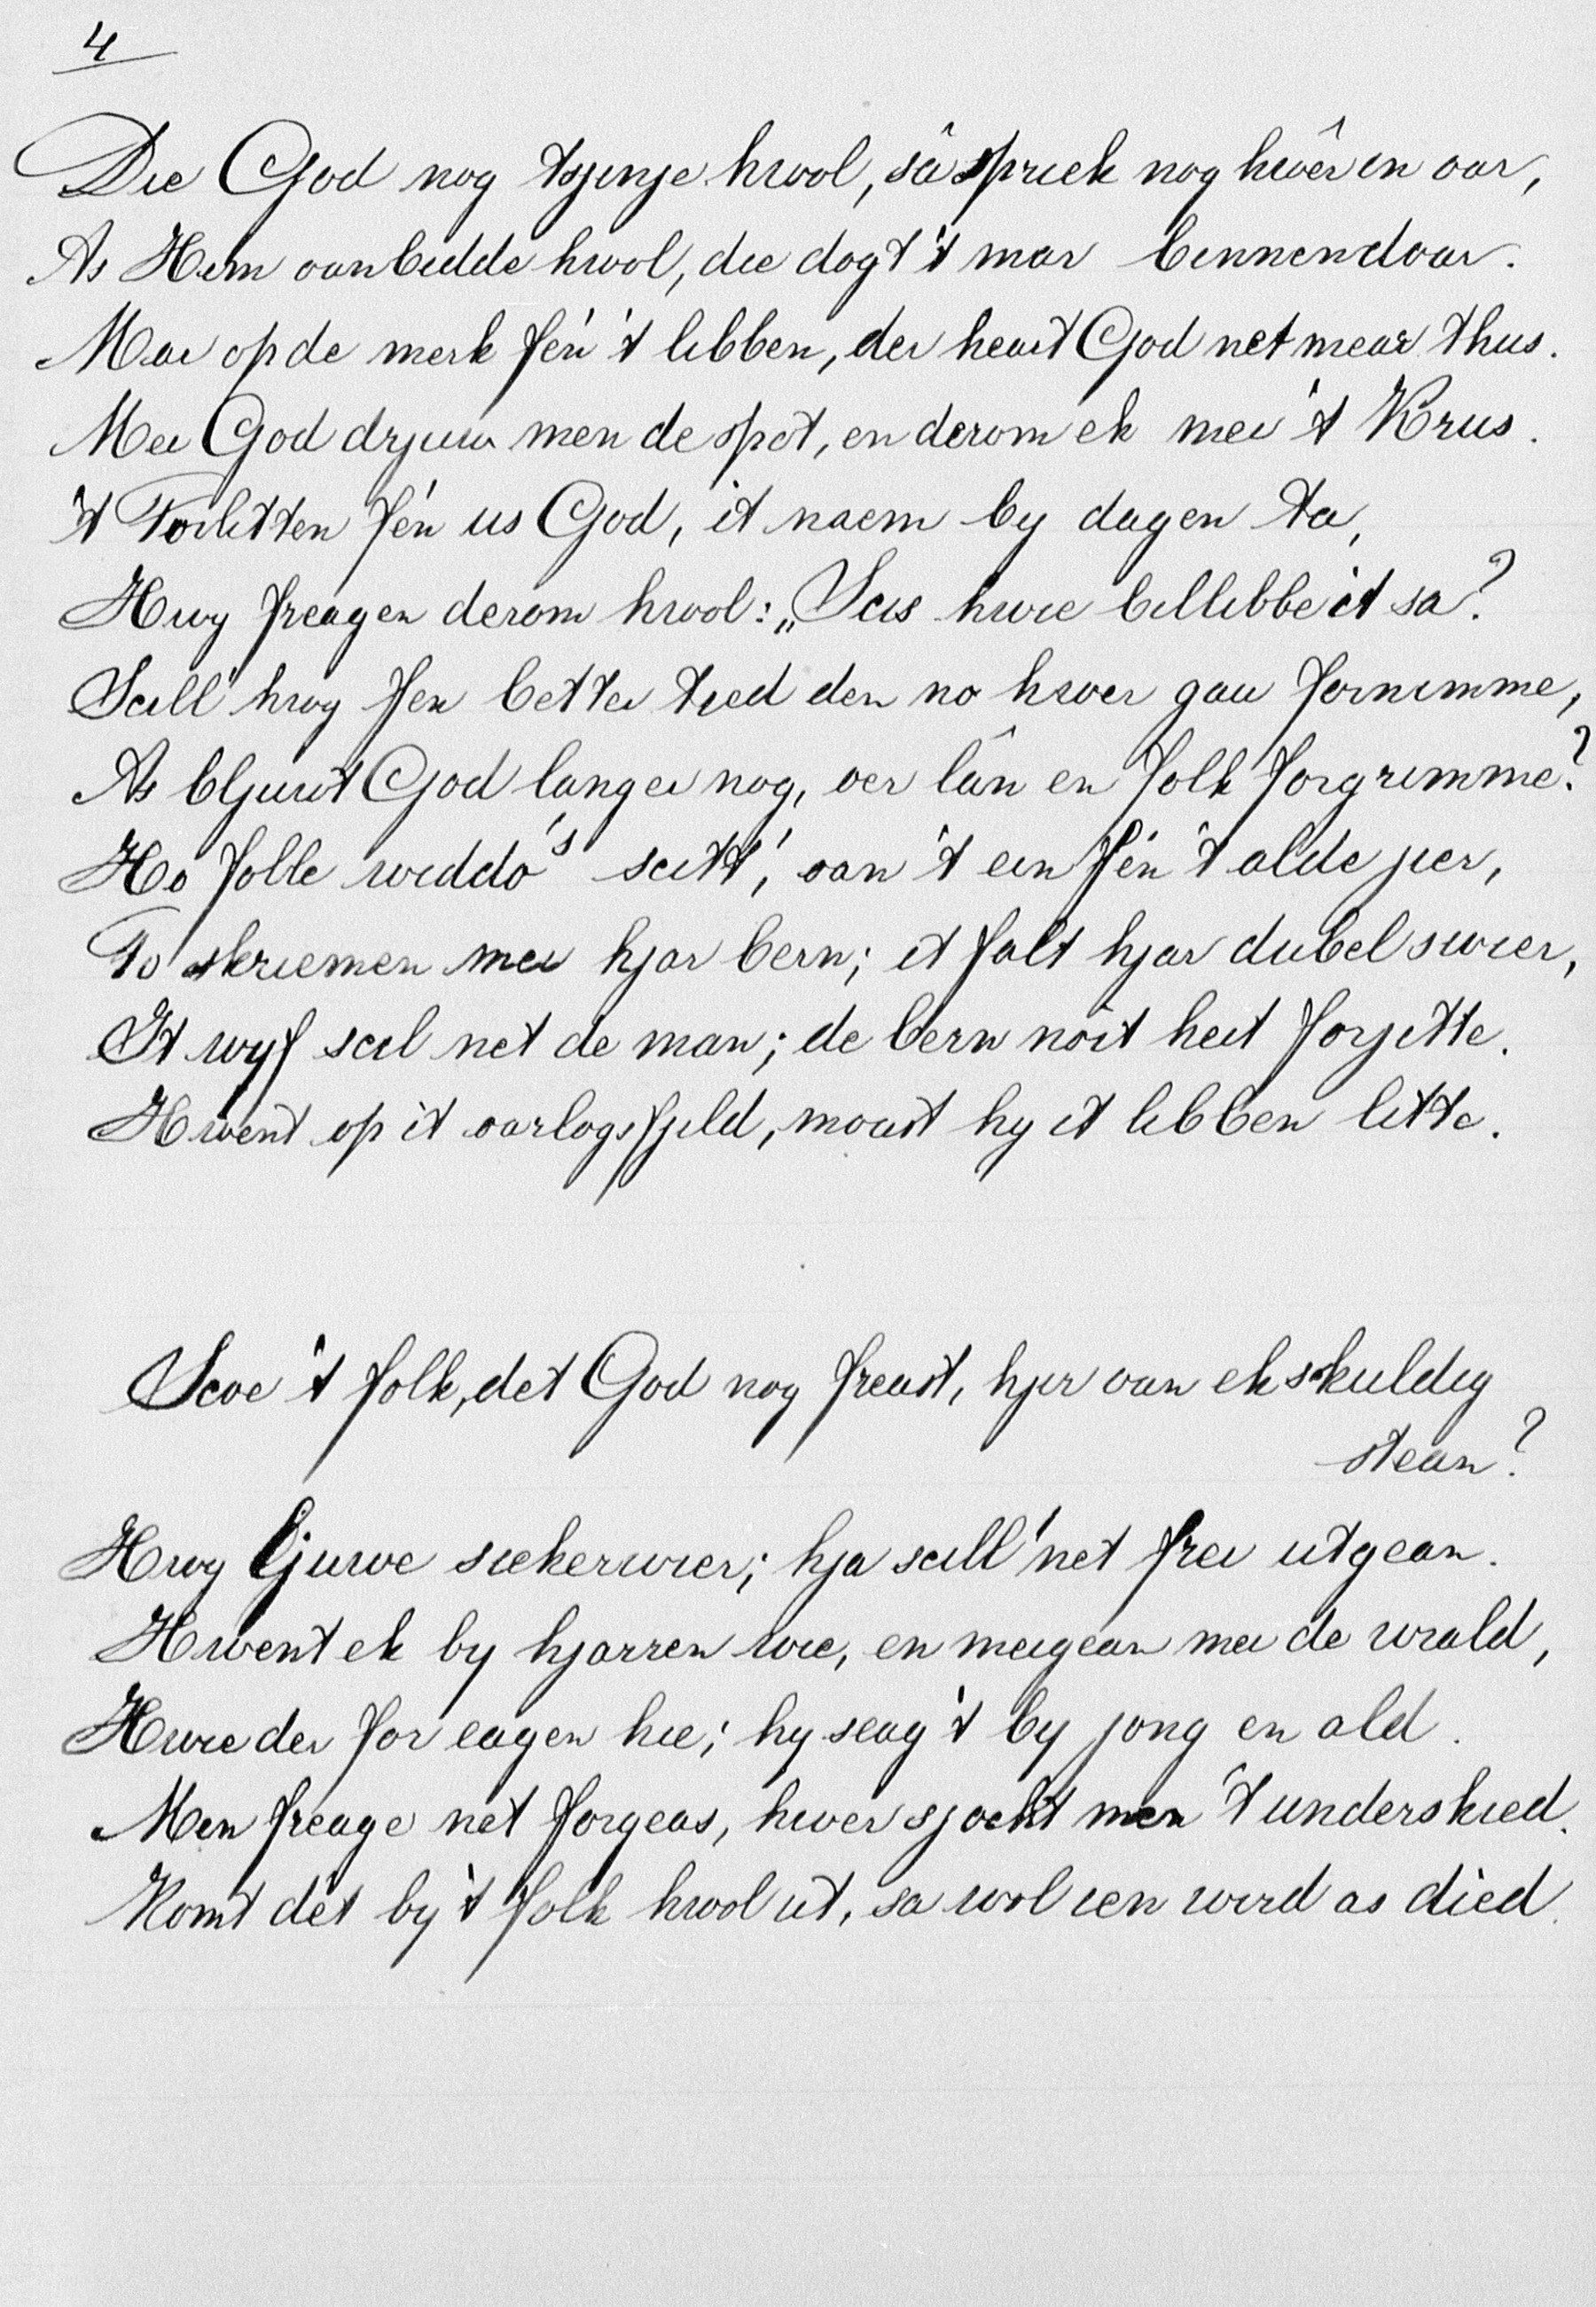 4
Die God nog tsjinje hwol, sâ spriek nog hwêr in oar,
As Him oanbidde hwol, die dogt 't mar binnendoar.
Mar op de merk fén 't libben, der heart God net mear thus.
Mei God drjuw men de spot, en derom ek mei 't Krus.
't Forlitten fén us God, it naem by dagen ta,
Hwy freagen derom hwol: „Scis hwie billibbe it sa?
Scill' hwy fen better tied den no hwer gau fornimme,
As bljuwt God langer nog, oer lân en folk forgrimme?
Ho folle widdo's scitt', oan 't ein fén 't alde jier,
To skriemen mei hjar bern; it falt hjar dubel swier,
It wyf scil net de man; de bern nôit heit forjitte.
Hwent op it oarlogsfjild, moast hy it libben litte.
Scoe 't folk, det God nog freast, hjir oan ek skuldig
stean?
Hwy ljuwe siekerwier; hja scill' net frei utgean.
Hwent ek by hjarren wie, en meigean mei de wrald,
Hwie der for eagen hie; hy seag 't by jong en ald.
Men freage net forgeas, hwer sjocht men 't underskied.
Komt dét by 't folk hwol ut, sa wol ien wird as died.